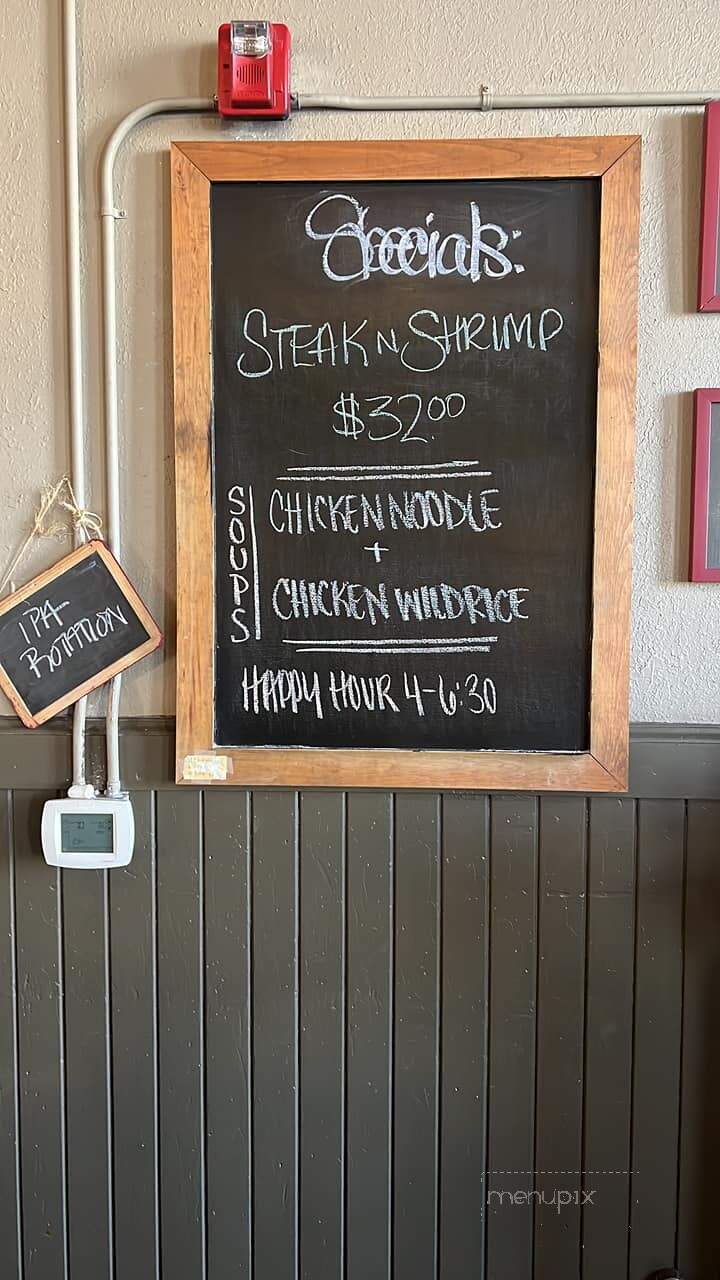 Specials:
STEAK N SHRIMP
$32.00
SOUPS
CHICKEN NOODLE
+
CHICKEN WILD RICE
HAPPY HOUR 4-6:30
IPA
ROTATION
menupix